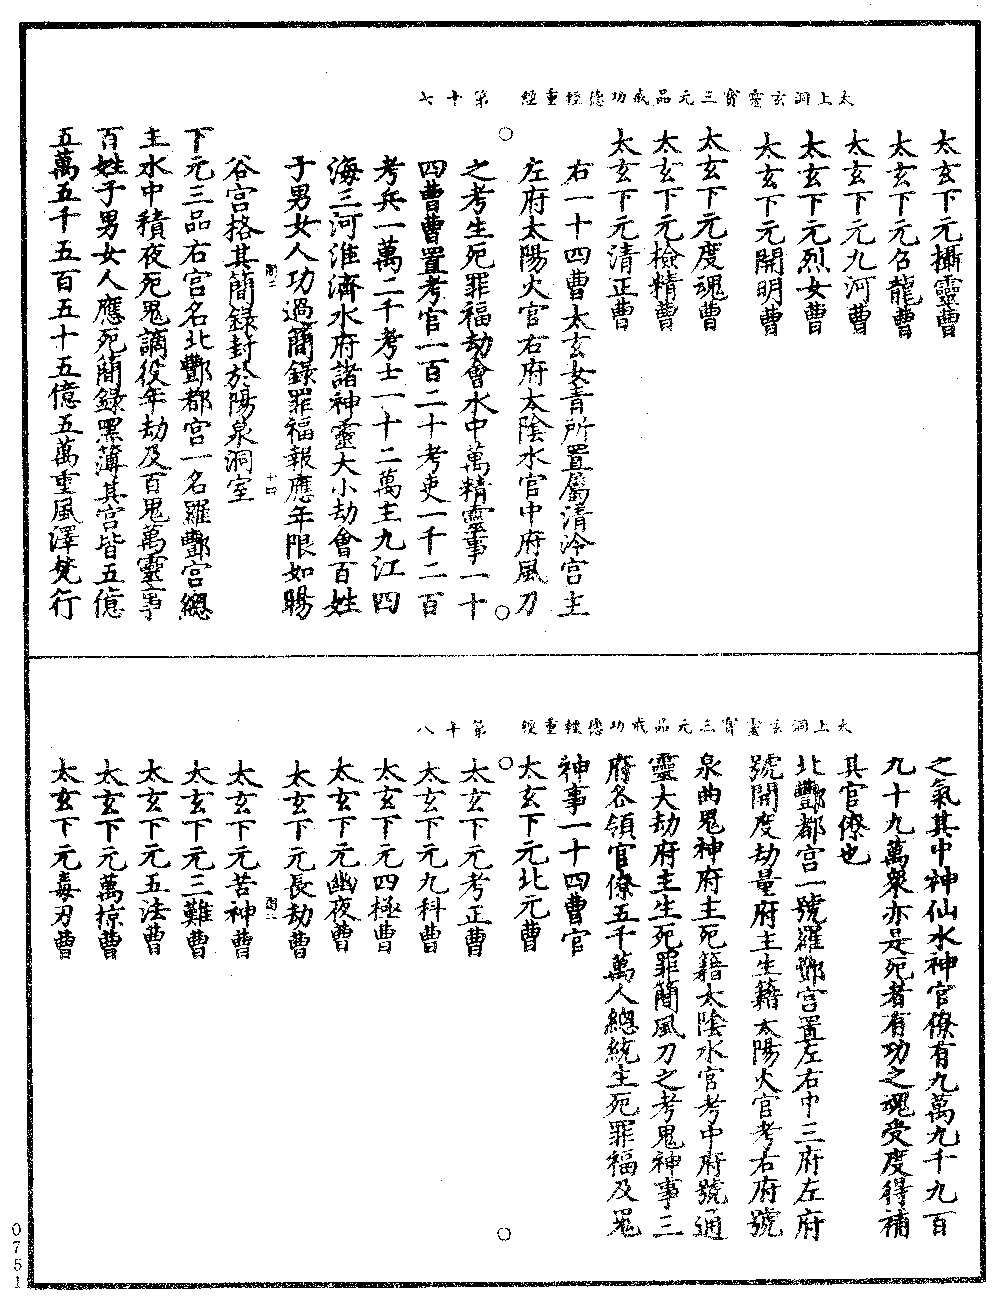 太上洞玄靈寶三元品戒功德輕重經　第十七
太玄下元攝靈曹
太玄下元召龍曹
太玄下元九河曹
太玄下元烈女曹
太玄下元開明曹
太玄下元度魂曹
太玄下元檢精曹
太玄下元清正曹
右一十四曹太玄女青所置屬清泠宮主
左府太陽火官右府太陰水官中府風刀
之考生死罪福劫會水中萬精靈事一十
四曹曹置考官一百二十考吏一千二百
考兵一萬二千考士一十二萬主九江四
海三河淮濟水府諸神靈大小劫會百姓
子男女人功過簡錄罪福報應年限如暘
谷宮格其簡錄封於陽泉洞室
下元三品右宮名北酆都宮一名羅酆宮總
主水中積夜死鬼謫役年劫及百鬼萬靈事
百姓子男女人應死簡錄黑簿其宮皆五億
五萬五千五百五十五億五萬重風澤梵行
太上洞玄靈寶三元品戒功德輕重經　第十八
之氣其中神仙水神官僚有九萬九千九百
九十九萬眾亦是死者有功之魂受度得補
其官僚也
北酆都宮一號羅酆宮置左右中三府左府
號開度劫量府主生籍太陽火官考右府號
泉曲鬼神府主死籍太陰水官考中府號通
靈大劫府主生死罪簡風刀之考鬼神事三
府各領官僚五千萬人總統生死罪福及鬼
神事一十四曹官
太玄下元北元曹
太玄下元考正曹
太玄下元九科曹
太玄下元四極曹
太玄下元幽夜曹
太玄下元長劫曹
太玄下元苦神曹
太玄下元三難曹
太玄下元五法曹
太玄下元萬掠曹
太玄下元毒刃曹
0751